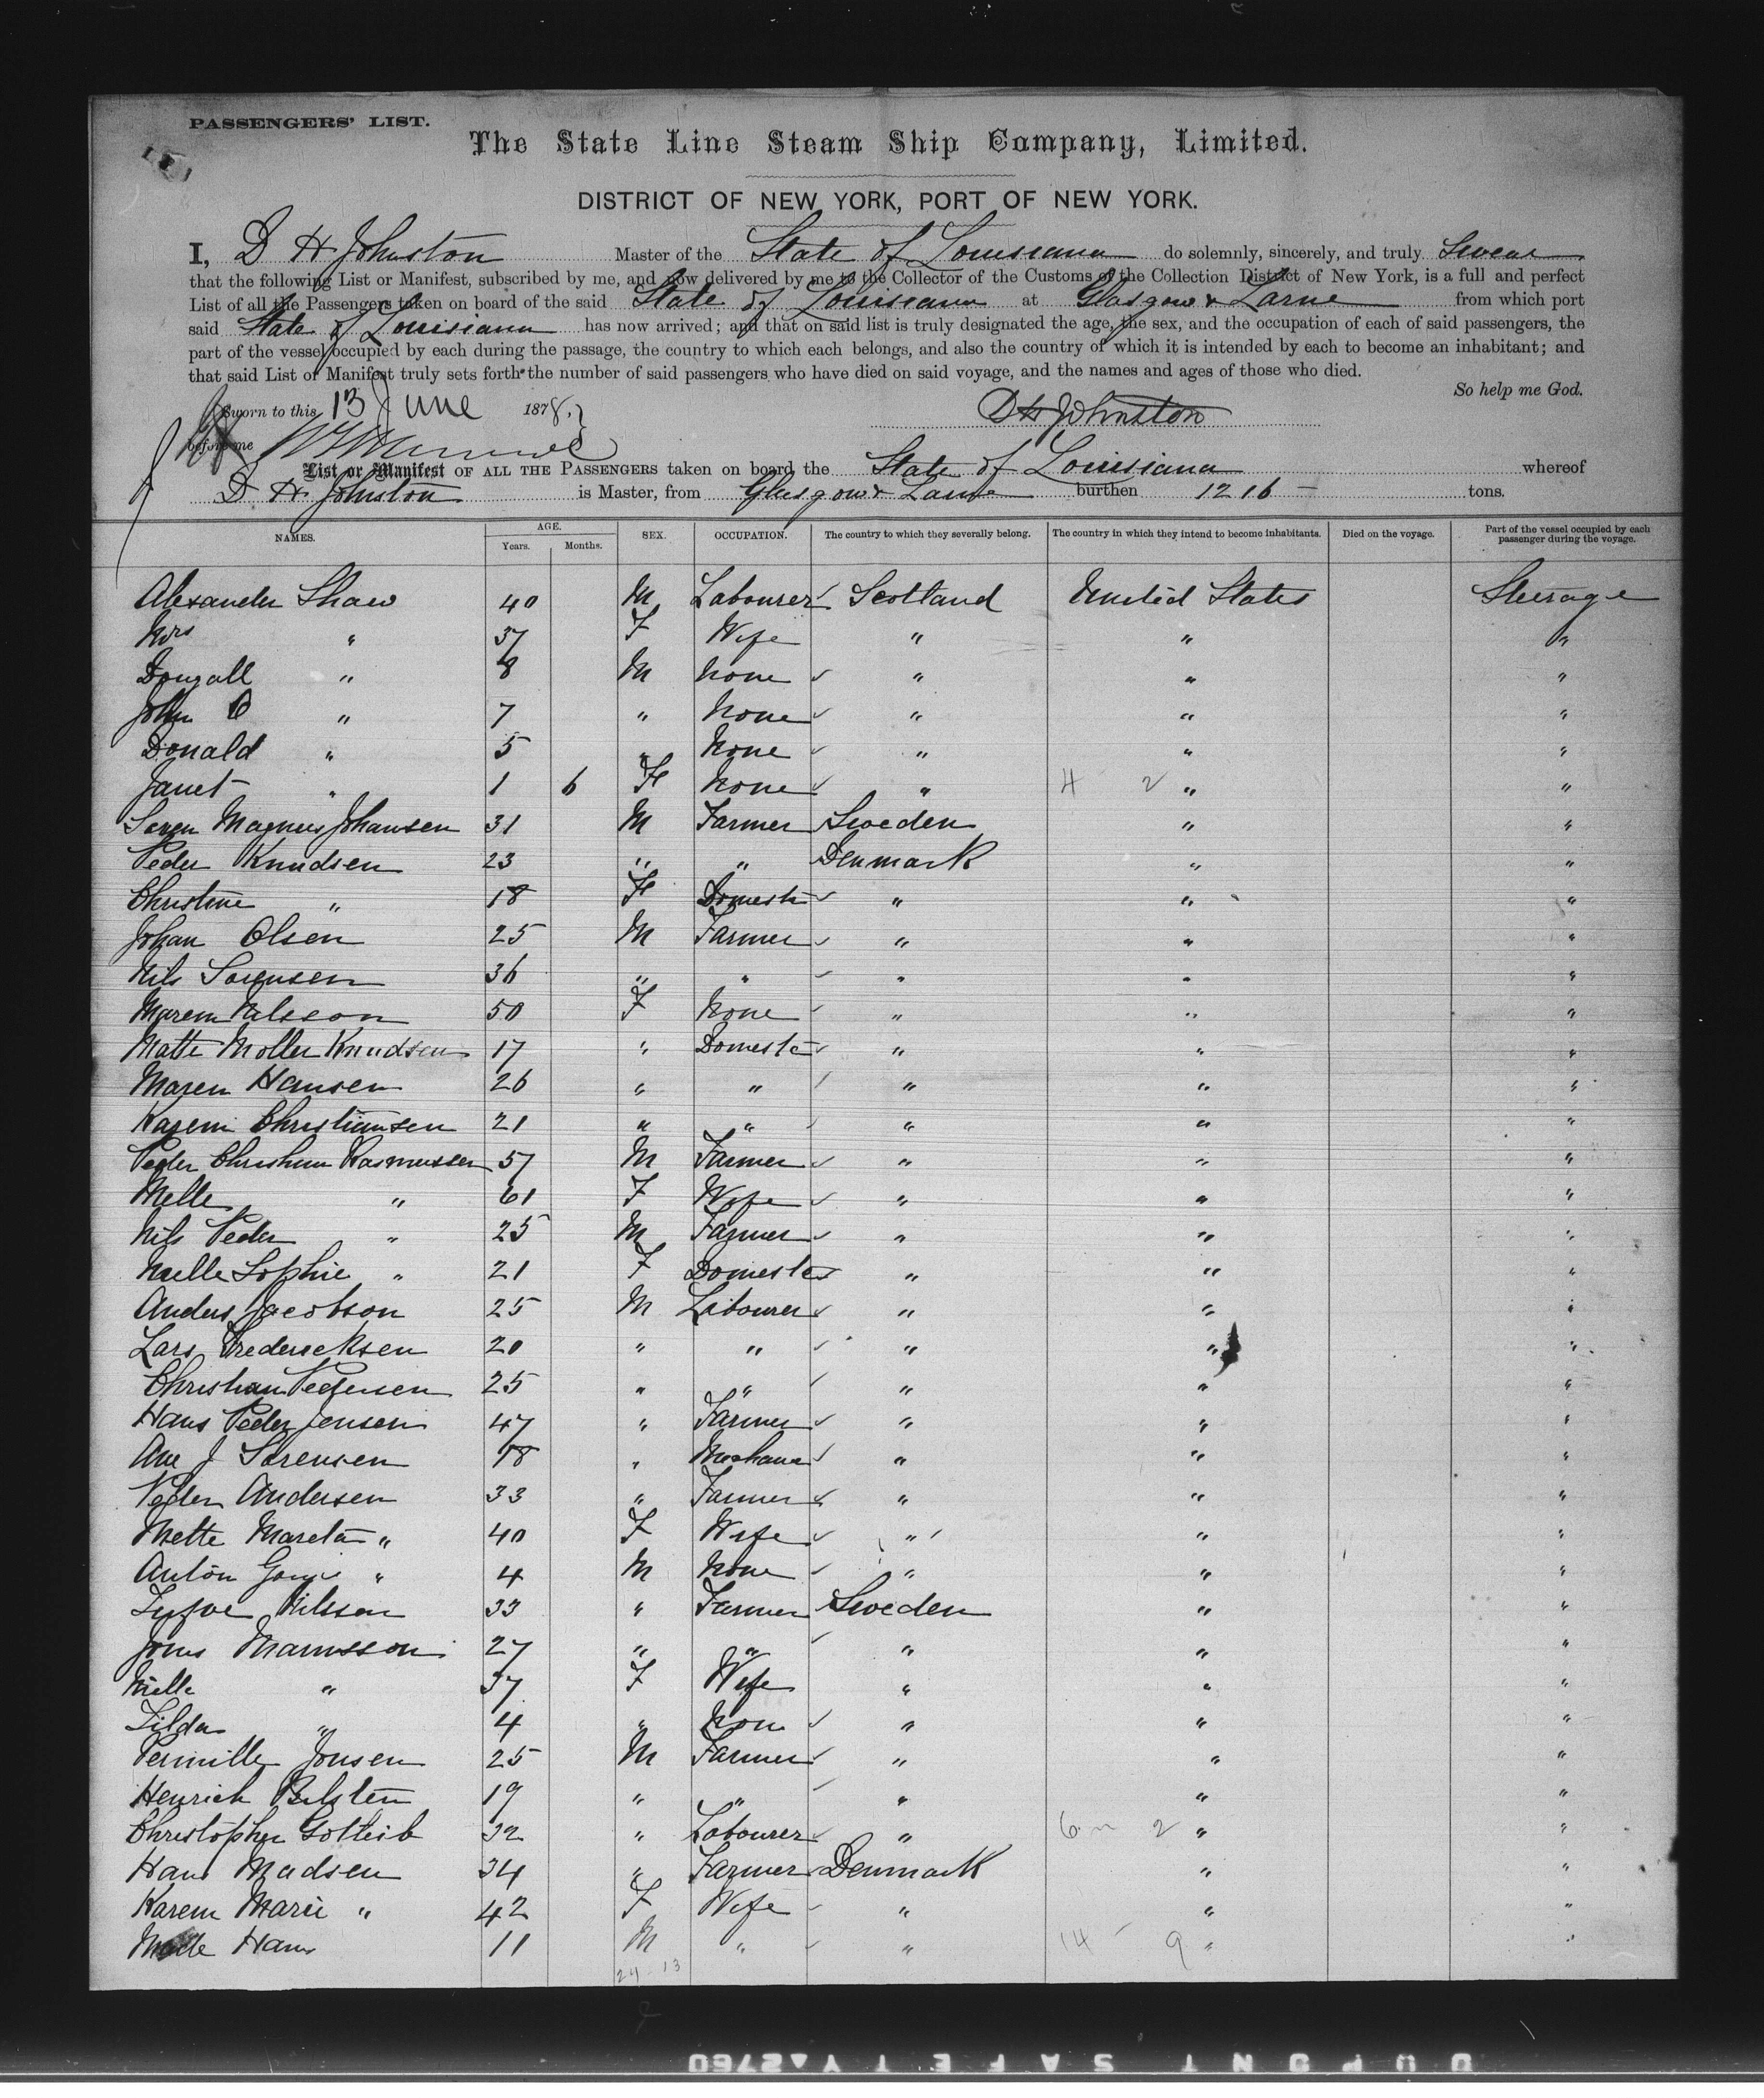 PASSENGERS' LIST.
The State Line Steam Ship Company, Limited.
DISTRICT OF NEW YORK, PORT OF NEW YORK.
I, D H Johnston Master of the State of Louisiana do solemnly, sincerely, and truly Swear
that the following List or Manifest, subscribed by me, and now delivered by me to the Collector of the Customs of the Collection District of New York, is a full and perfect
List of all the Passengers taken on board of the said State of Louisiana at Glasgow & Larne from which port
said State of Louisiana has now arrived; and that on said list is truly designated the age, the sex, and the occupation of each of said passengers, the
part of the vessel occupied by each during the passage, the country to which each belongs, and also the country of which it is intended by each to become an inhabitant; and
that said List or Manifest truly sets forth the number of said passengers who have died on said voyage, and the names and ages of those who died.
So help me God.
Sworn to this 13 June 1878.
before me
D H Johnston
List or Manifest OF ALL THE PASSENGERS taken on board the State of Louisiana whereof
D H Johnston is Master, from Glasgow & Larne burthen 1216 tons.
NAMES. AGE. Years. Months. SEX. OCCUPATION. The country to which they severally belong. The country in which they intend to become inhabitants. Died on the voyage. Part of the vessel occupied by each passenger during the voyage.
Alexander Shaw 40 M Labourer Scotland United States Steerage
Mrs " 37 F Wife " " "
Dougall " 8 M None " " "
John C " 7 " None " " "
Donald " 5 " None " " "
Janet " 1 6 F None " 4 2 " "
Soren Magnus Johansen 31 M Farmer Sweden " "
Peder Knudsen 23 " " Denmark " "
Christine " 18 F Domestic " " "
Johan Olsen 25 M Farmer " " "
Nils Sorensen 36 " " " " "
Maren Nilsson 50 F None " " "
Matte Moller Knudsen 17 " Domestic " " "
Maren Hansen 26 " " " " "
Karen Christiansen 21 " " " " "
Peder Christian Rasmussen 57 M Farmer " " "
Mille " 61 F Wife " " "
Nils Peder " 25 M Farmer " " "
Sophie " 21 F Domestic " " "
Anders Jacobson 25 M Labourer " " "
Lars Fredericksen 20 " " " " "
Christian Pedersen 25 " " " " "
Hans Peder Jensen 47 " Farmer " " "
Ane J Sorensen 18 " Mechanic " " "
Peder Andersen 33 " Farmer " " "
Mette " 40 F Wife " " "
Anton " 4 M None " " "
Nilsson 33 " Farmer Sweden " "
Jons 27 " " " " "
" 37 F Wife " " "
" 4 " Non " " "
Pernille Jonsen 25 M Farmer " " "
Henrich 19 " " " " "
Christopher Gotleib 32 " Labourer " 6 2 " "
Hans Madsen 34 " Farmer Denmark " "
Karen Marie " 42 F Wife " " "
Hans 11 M " " 14 9 " "
24 13
DUPONT SAFETY 2760